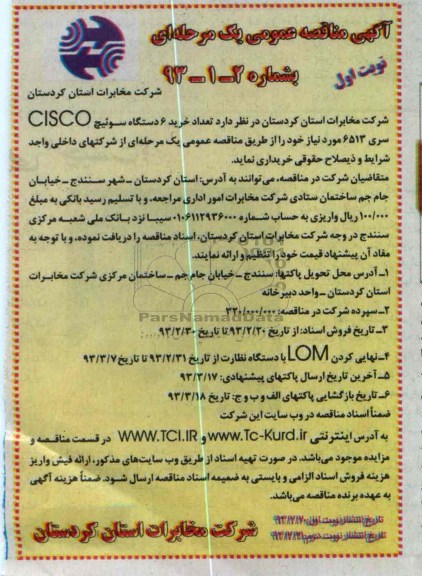 آگهی مناقصه عمومی یک مرحله‌ای
بشماره ۲-۱-۹۳
نوبت اول
شرکت مخابرات استان کردستان
شرکت مخابرات استان کردستان در نظر دارد تعداد خرید ۶ دستگاه سوئیچ CISCO
سری ۶۵۱۳ مورد نیاز خود را از طریق مناقصه عمومی یک مرحله‌ای از شرکتهای داخلی واجد
شرایط و ذیصلاح حقوقی خریداری نماید.
متقاضیان شرکت در مناقصه، می‌توانند به آدرس: استان کردستان - شهر سنندج - خیابان
جام جم ساختمان ستادی شرکت مخابرات امور اداری مراجعه، و با تسلیم رسید بانکی به مبلغ
۱۰۰/۰۰۰ ریال واریزی به حساب شماره ۰۱۰۶۱۱۲۹۳۶۰۰۰ سیبا نزد بانک ملی شعبه مرکزی
سنندج در وجه شرکت مخابرات استان کردستان، اسناد مناقصه را دریافت نموده، و با توجه به
مفاد آن پیشنهاد قیمت خود را تنظیم و ارائه نمایند.
۱- آدرس محل تحویل پاکتها: سنندج - خیابان جام جم - ساختمان مرکزی شرکت مخابرات
استان کردستان - واحد دبیرخانه
۲- سپرده شرکت در مناقصه: ۳۲۰/۰۰۰/۰۰۰
ParsNamadData
۳- تاریخ فروش اسناد: از تاریخ ۹۳/۲/۲۰ تا تاریخ ۹۳/۲/۳۰
۴- نهایی کردن LOM با دستگاه نظارت از تاریخ ۹۳/۲/۳۱ تا تاریخ ۹۳/۳/۷
۵- آخرین تاریخ ارسال پاکتهای پیشنهادی: ۹۳/۳/۱۷
۶- تاریخ بازگشایی پاکتهای الف و ب و ج: تاریخ ۹۳/۳/۱۸
ضمناً اسناد مناقصه در وب سایت این شرکت
به آدرس اینترنتی www.Tc-Kurd.ir و WWW.TCI.IR در قسمت مناقصه و
مزایده موجود می‌باشد. در صورت تهیه اسناد از طریق وب سایت‌های مذکور، ارائه فیش واریز
هزینه فروش اسناد الزامی و بایستی به ضمیمه اسناد مناقصه ارسال شود. ضمناً هزینه آگهی
به عهده برنده مناقصه می‌باشد.
تاریخ انتشار نوبت اول:
تاریخ انتشار نوبت دوم:
شرکت مخابرات استان کردستان